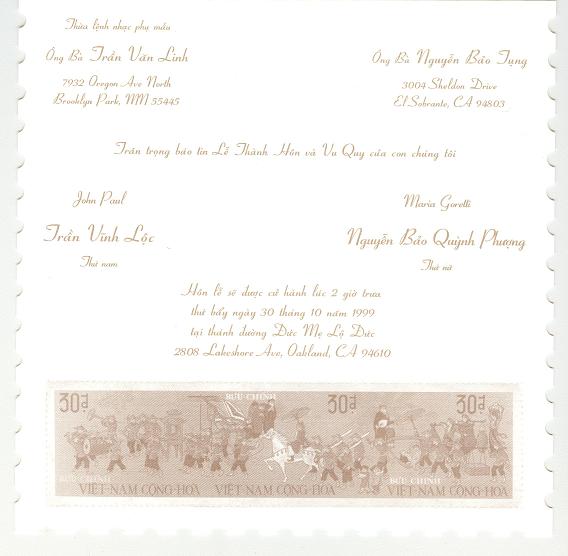 Thừa lệnh nhạc phụ mẫu
Ông Bà Trần Văn Linh
7932 Oregon Ave North
Brooklyn Park, MM 55445
Ông Bà Nguyễn Bảo Tụng
3004 Sheldon Drive
El Sobrante, CA 94803
Trân trọng báo tin Lễ Thành Hôn và Vu Quy của con chúng tôi
John Paul
Trần Vĩnh Lộc
Thứ nam
Maria Goretti
Nguyễn Bảo Quỳnh Phượng
Thứ nữ
Hôn lễ sẽ được cử hành lúc 2 giờ trưa
thứ bẩy ngày 30 tháng 10 năm 1999
tại thánh đường Đức Mẹ Lộ Đức
2808 Lakeshore Ave, Oakland, CA 94610
30đ BƯU CHÍNH 30đ 30đ
BƯU CHÍNH BƯU CHÍNH
VIỆT-NAM CỘNG-HÒA VIỆT-NAM CỘNG-HÒA VIỆT-NAM CỘNG-HÒA